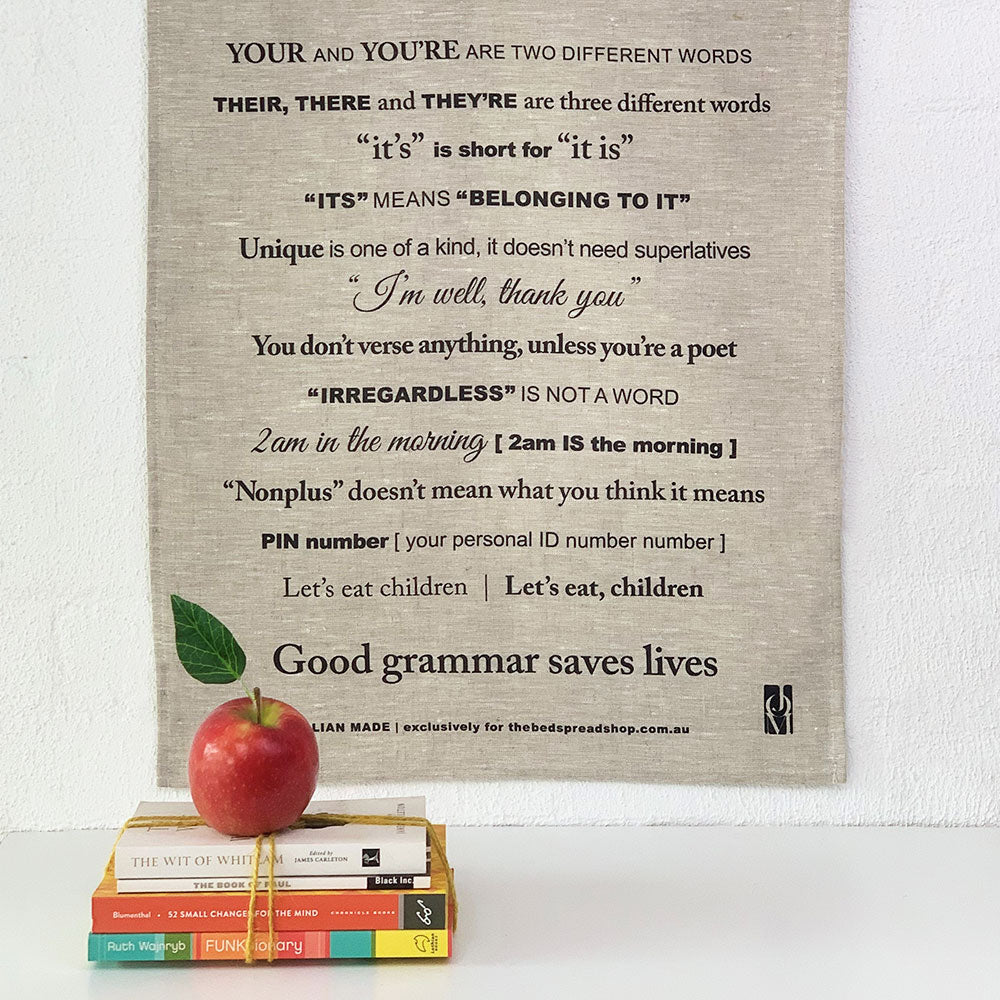 YOUR AND YOU'RE ARE TWO DIFFERENT WORDS
THEIR, THERE and THEY'RE are three different words
“it's” is short for “it is”
“ITS” MEANS “BELONGING TO IT”
Unique is one of a kind, it doesn't need superlatives
“I'm well, thank you”
You don't verse anything, unless you're a poet
“IRREGARDLESS” IS NOT A WORD
2am in the morning [ 2am IS the morning ]
“Nonplus” doesn't mean what you think it means
PIN number [ your personal ID number number ]
Let's eat children | Let's eat, children
Good grammar saves lives
LIAN MADE | exclusively for thebedspreadshop.com.au
THE WIT OF WHITLAM Edited by JAMES CARLETON
THE BOOK OF PAUL Black Inc.
Blumenthal • 52 SMALL CHANGES FOR THE MIND CHRONICLE BOOKS
Ruth Wajnryb FUNKtionary